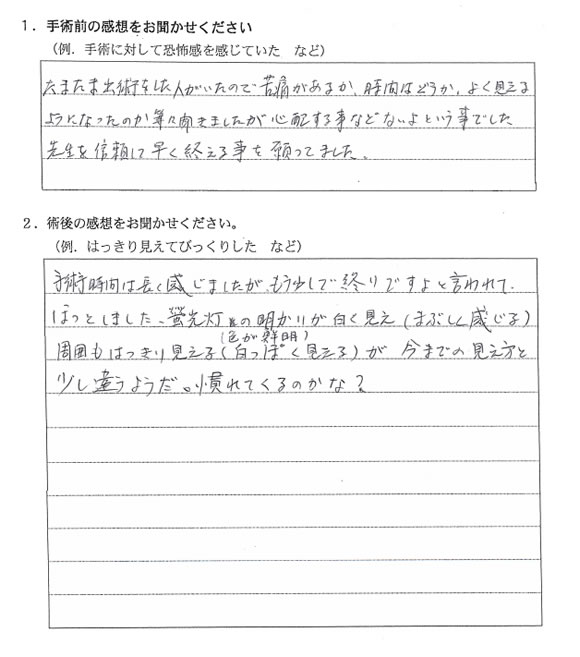 1．手術前の感想をお聞かせください
（例．手術に対して恐怖感を感じていた　など）
たまたま出術をした人がいたので苦痛があるか、時間はどうか、よく見える
ようになったのか等々聞きましたが心配する事などないよという事でした
先生を信頼して早く終える事を願ってました、
2．術後の感想をお聞かせください。
（例．はっきり見えてびっくりした　など）
手術時間は長く感じましたが、もう少しで終りですよと言われて、
ほっとしました、螢光灯の明かりが白く見え（まぶしく感じる）
（色が鮮明）
周囲もはっきり見える（白っぽく見える）が 今までの見え方と
少し違うようだ。慣れてくるのかな？